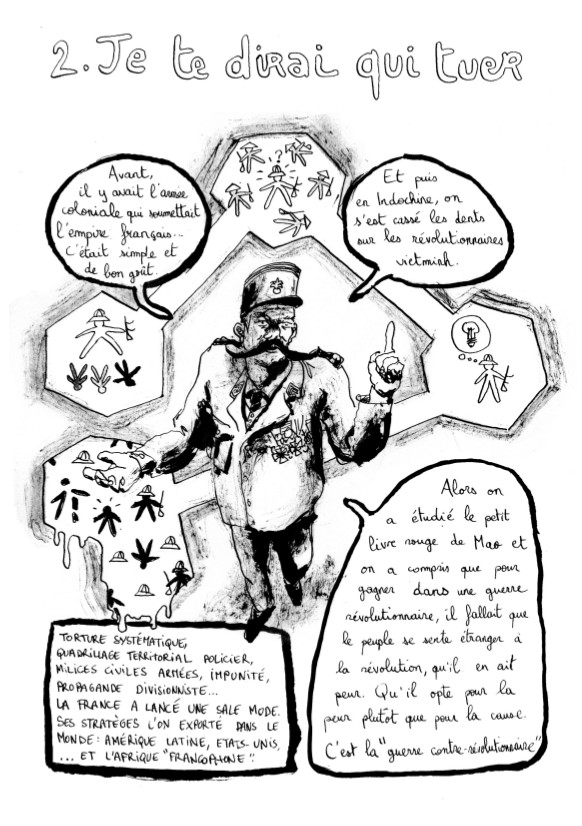 2. Je te dirai qui tuer
Avant,
il y avait l'armée
coloniale qui soumettait
l'empire français...
C'était simple et
de bon goût.
Et puis
en Indochine, on
s'est cassé les dents
sur les révolutionnaires
vietminh.
!?
Alors on
a étudié le petit
livre rouge de Mao et
on a compris que pour
gagner dans une guerre
révolutionnaire, il fallait que
le peuple se sente étranger à
la révolution, qu'il en ait
peur. Qu'il opte pour la
peur plutôt que pour la cause.
C'est la "guerre contre-révolutionnaire"
TORTURE SYSTÉMATIQUE,
QUADRILLAGE TERRITORIAL POLICIER,
MILICES CIVILES ARMÉES, IMPUNITÉ,
PROPAGANDE DIVISIONNISTE...
LA FRANCE A LANCÉ UNE SALE MODE.
SES STRATÈGES L'ON EXPORTÉ DANS LE
MONDE : AMÉRIQUE LATINE, ETATS-UNIS,
... ET L'AFRIQUE "FRANCOPHONE".